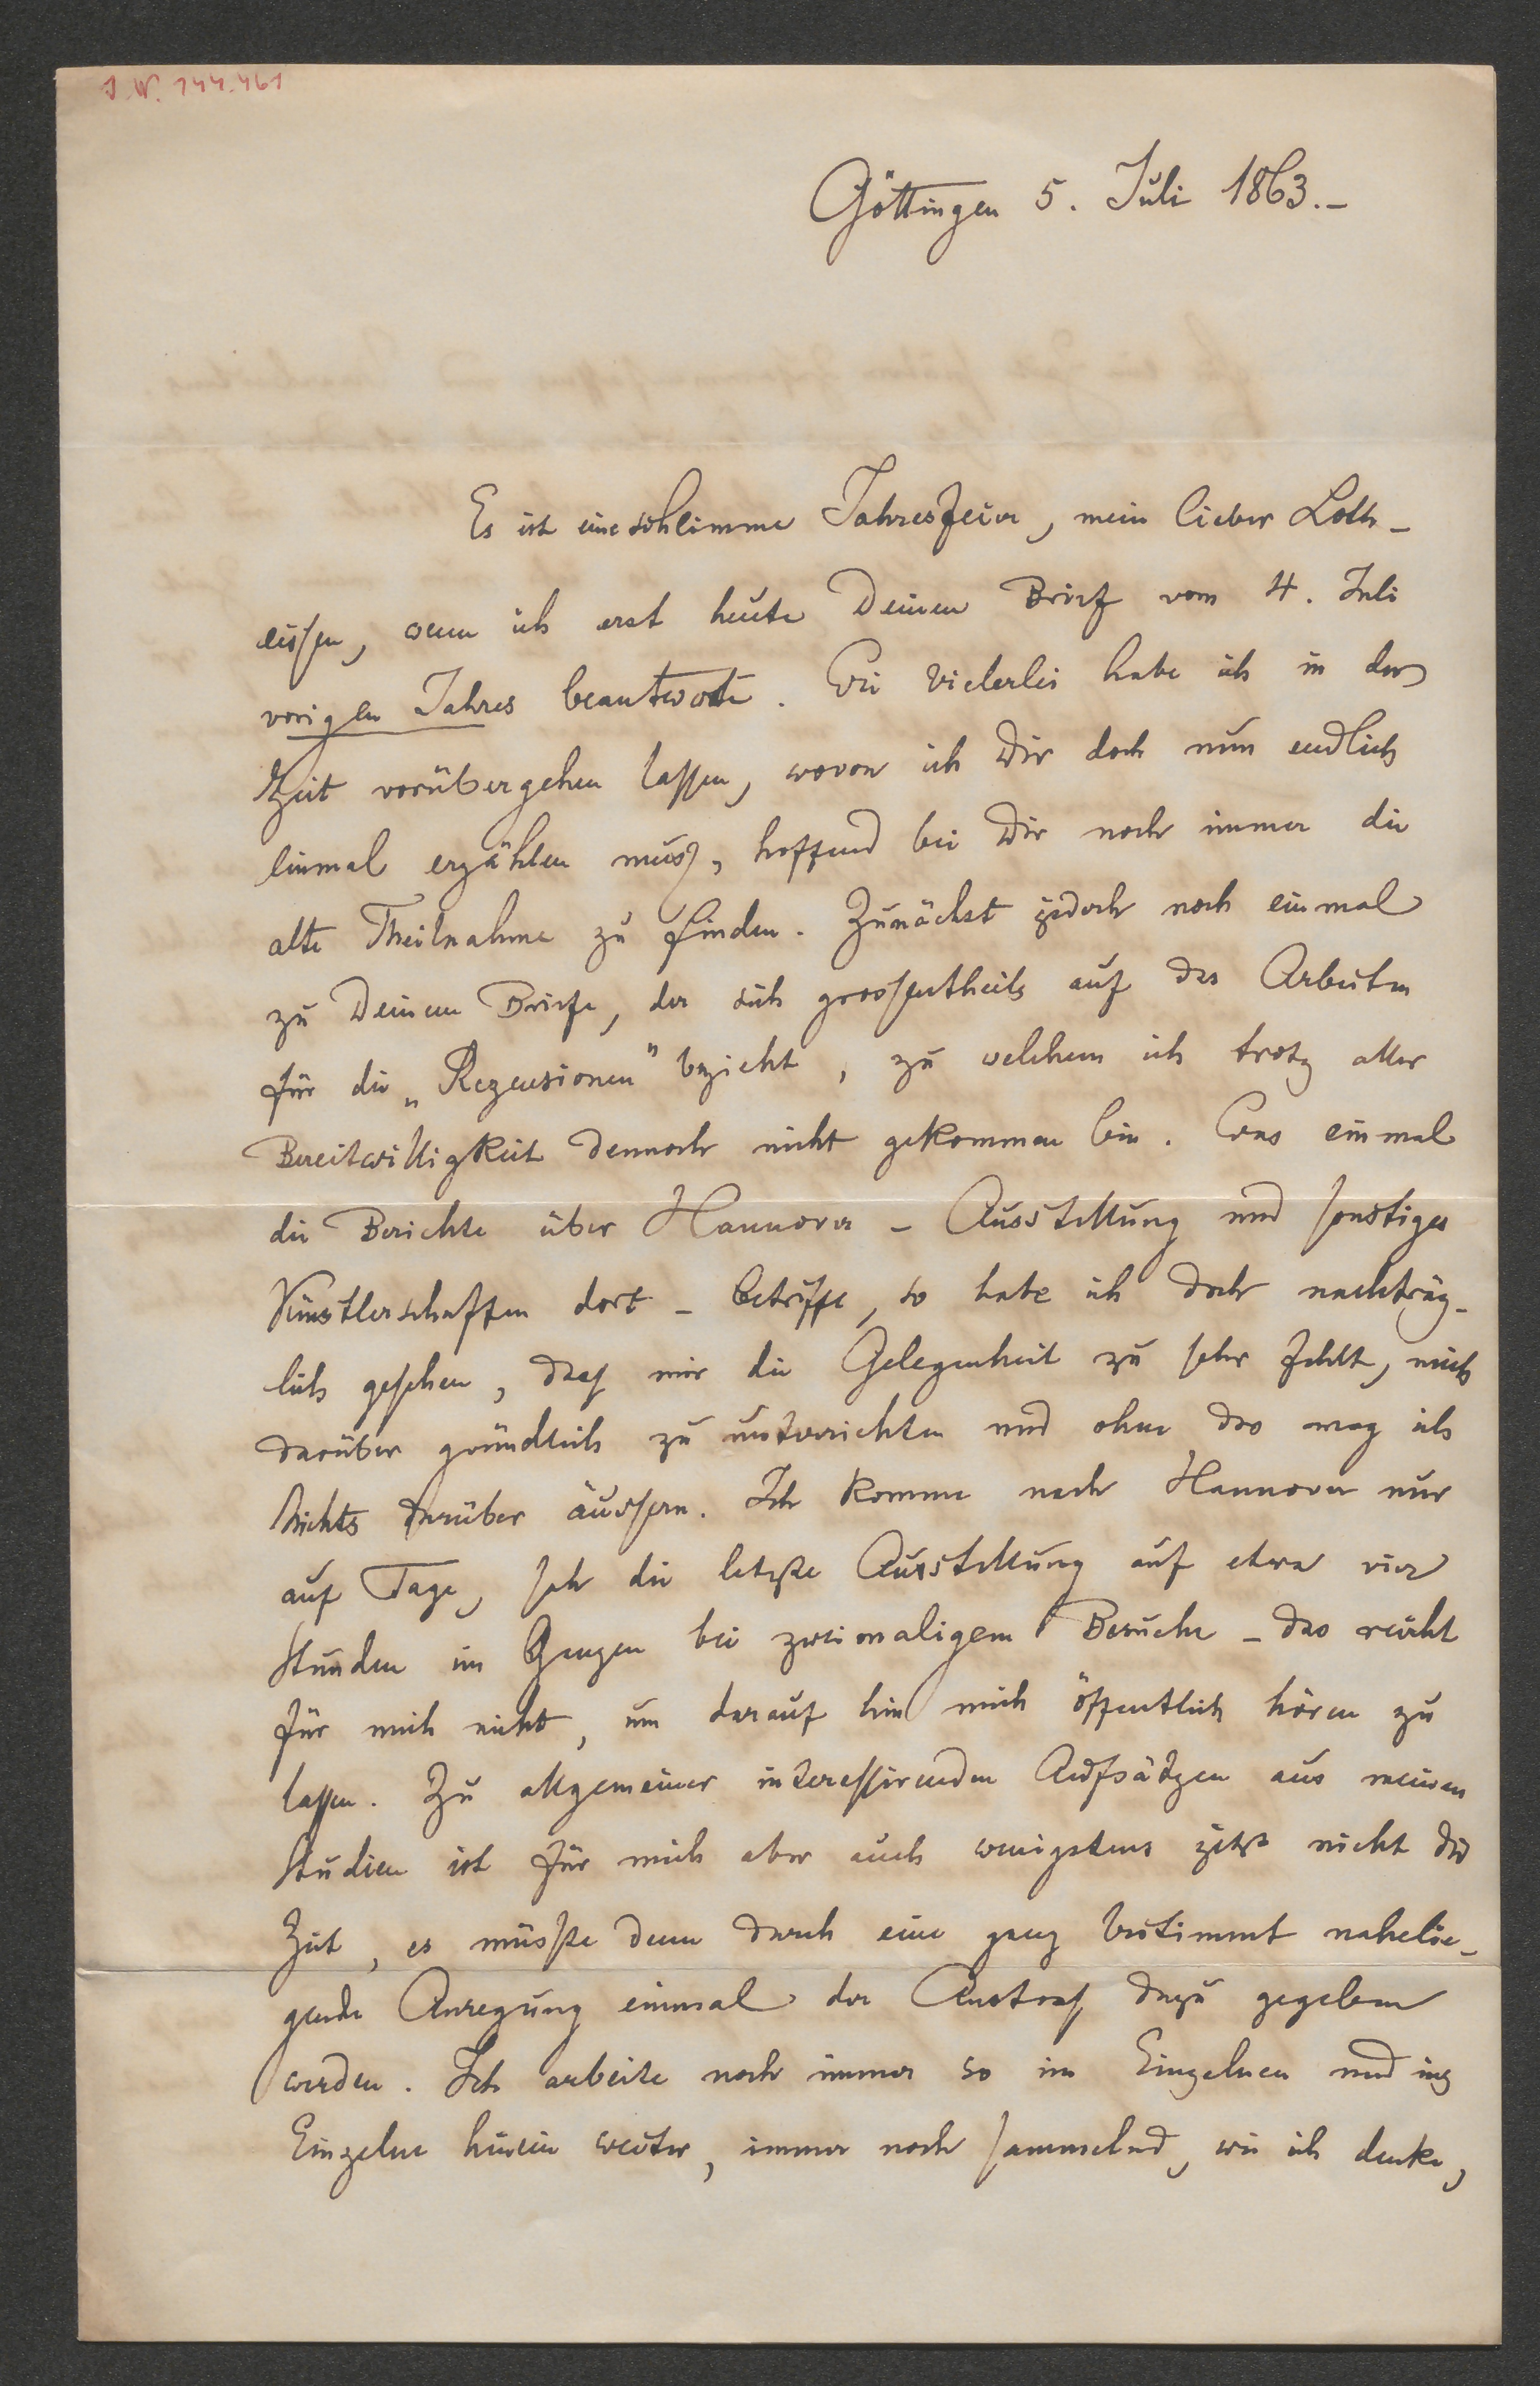 J. N. 144.461
Göttingen 5. Juli 1863.-
Es ist eine schlimme Jahresfeier, mein lieber Loth-
eissen, wenn ich erst heute Deinen Brief vom 4. Juli
vorigen Jahres beantworte. Wie vielerlei habe ich in der
Zeit vorübergehen lassen, wovon ich Dir doch nun endlich
einmal erzählen muss, hoffend bei Dir noch immer die
alte Theilnahme zu finden. Zunächst jedoch noch einmal
zu Deinem Briefe, der sich grossentheils auf das Arbeiten
für die „Rezensionen" bezieht, zu welchem ich trotz aller
Bereitwilligkeit dennoch nicht gekommen bin. Was einmal
die Berichte über Hannover - Ausstellung und sonstiges
Künstlerschaffen dort - betrifft, so habe ich doch nachträg-
lich gesehen, dass mir die Gelegenheit zu sehr fehlt, mich
darüber gründlich zu unterrichten und ohne das mag ich
Nichts darüber äussern. Ich komme nach Hannover nur
auf Tage, sah die letzte Ausstellung auf etwa vier
Stunden im Ganzen bei zweimaligem Besuche - das reicht
für mich nicht, um darauf hin mich öffentlich hören zu
lassen. Zu allgemeiner interessirenden Aufsätzen aus meinen
Studien ist für mich aber auch wenigstens jetzt nicht die
Zeit, es müsste denn durch eine ganz bestimmt nahelie-
gende Anregung einmal der Anstoss dazu gegeben
werden. Ich arbeite noch immer so im Einzelnen und ins
Einzelne hinein weiter, immer noch sammelnd, wie ich denke,